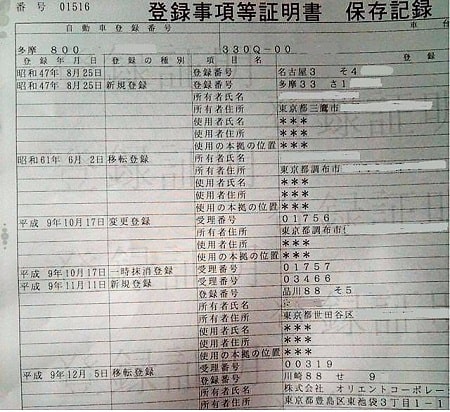 番号 01516 登録事項等証明書 保存記録
自動車登録番号 車台
多摩 800 330Q-00
登録年月日 登録の種別 項目
昭和47年 8月25日 登録番号 名古屋3 そ4
昭和47年 8月25日 新規登録 登録番号 多摩33 さ1
所有者氏名
所有者住所 東京都三鷹市
使用者氏名 ***
使用者住所 ***
使用の本拠の位置 ***
昭和61年 6月 2日 移転登録 所有者氏名
所有者住所 東京都調布市
使用者氏名 ***
使用者住所 ***
使用の本拠の位置 ***
平成 9年10月17日 変更登録 受理番号 01756
所有者住所 東京都調布市
使用者住所 ***
使用の本拠の位置 ***
平成 9年10月17日 一時抹消登録 受理番号 01757
平成 9年11月11日 新規登録 受理番号 03466
登録番号 品川88 そ5
所有者氏名
所有者住所 東京都世田谷区
使用者氏名 ***
使用者住所 ***
使用の本拠の位置 ***
平成 9年12月 5日 移転登録 受理番号 00319
登録番号 川崎88 せ 9
所有者氏名 株式会社 オリエントコーポレー
所有者住所 東京都豊島区東池袋3丁目1-1